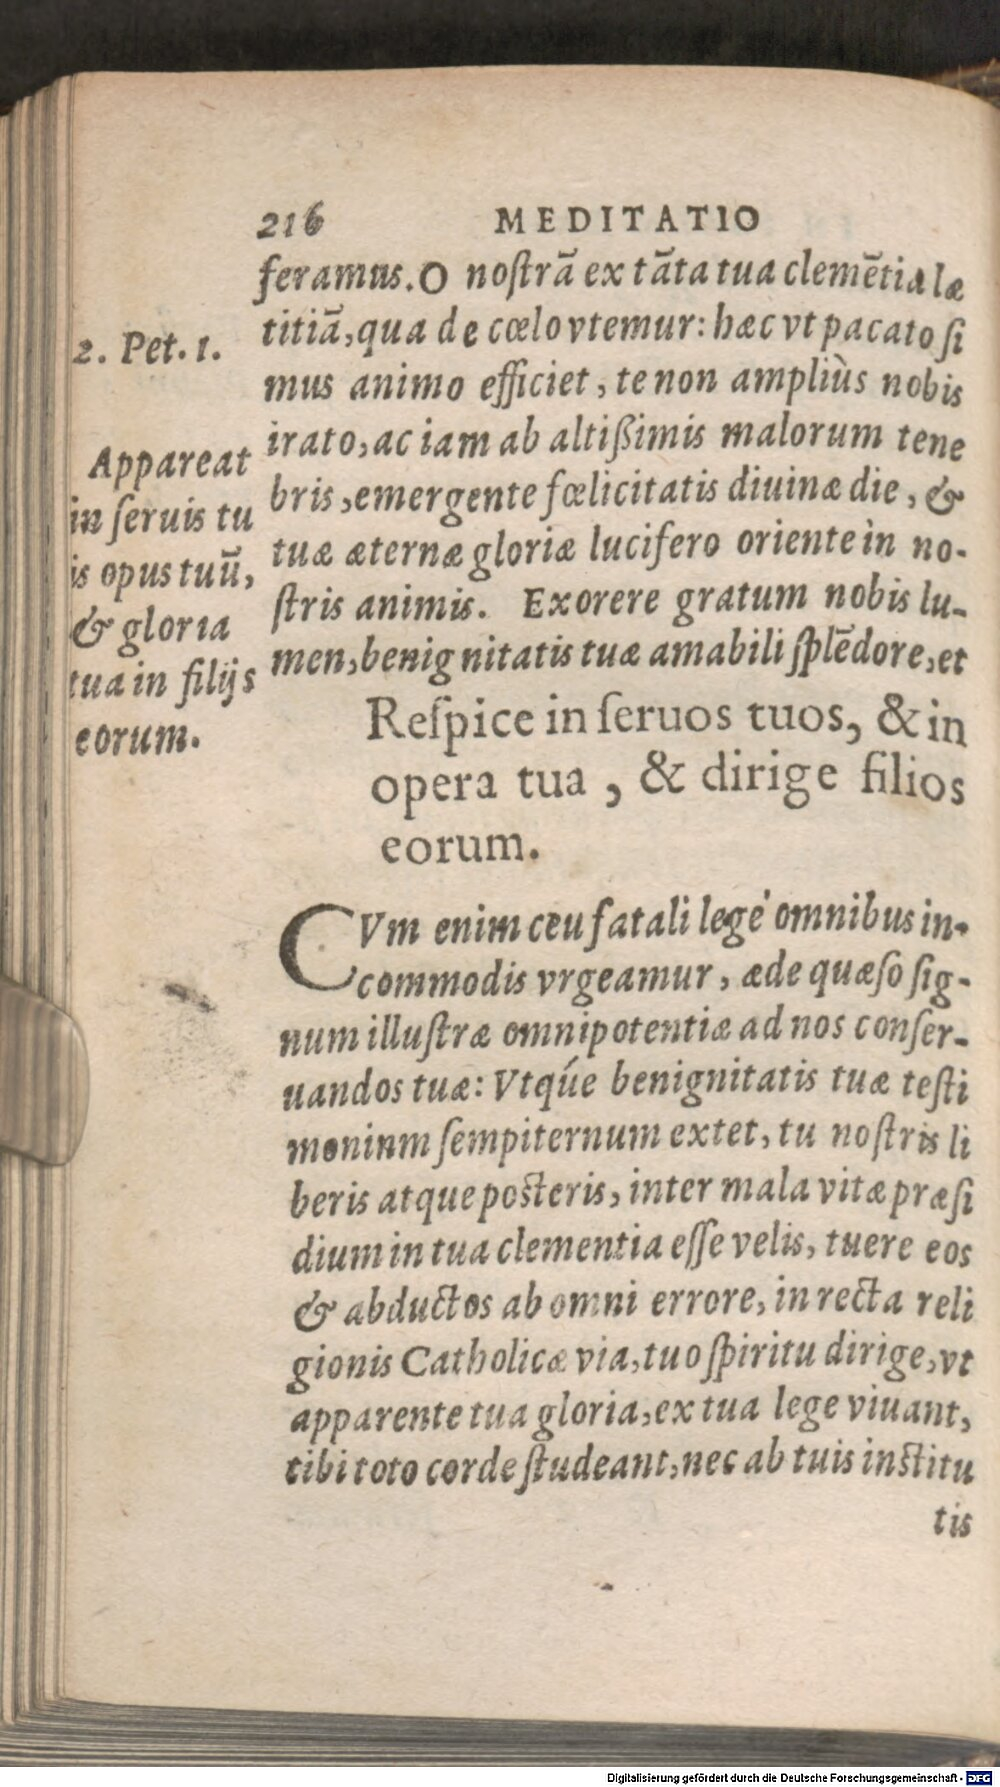 216 MEDITATIO
feramus. O nostrā ex tāta tua clemētia læ
titiā, qua de cœlo vtemur: hæc vt pacato si
mus animo efficiet, te non ampliùs nobis
irato, ac iam ab altißimis malorum tene
bris, emergente fœlicitatis diuinæ die, &
tuæ æternæ gloriæ lucifero oriente in no-
stris animis. Exorere gratum nobis lu-
men, benignitatis tuæ amabili splēdore, et
2. Pet. 1.
Appareat
in seruis tu
is opus tuū,
& gloria
tua in filijs
eorum.
Respice in seruos tuos, & in
opera tua, & dirige filios
eorum.
CVm enim ceu fatali lege omnibus in-
commodis vrgeamur, æde quæso sig-
num illustræ omnipotentiæ ad nos conser-
uandos tuæ: Vtqúe benignitatis tuæ testi
moninm sempiternum extet, tu nostris li
beris atque posteris, inter mala vitæ præsi
dium in tua clementia esse velis, tuere eos
& abductos ab omni errore, in recta reli
gionis Catholicæ via, tuo spiritu dirige, vt
apparente tua gloria, ex tua lege viuant,
tibi toto corde studeant, nec ab tuis institu
tis
Digitalisierung gefördert durch die Deutsche Forschungsgemeinschaft - DFG